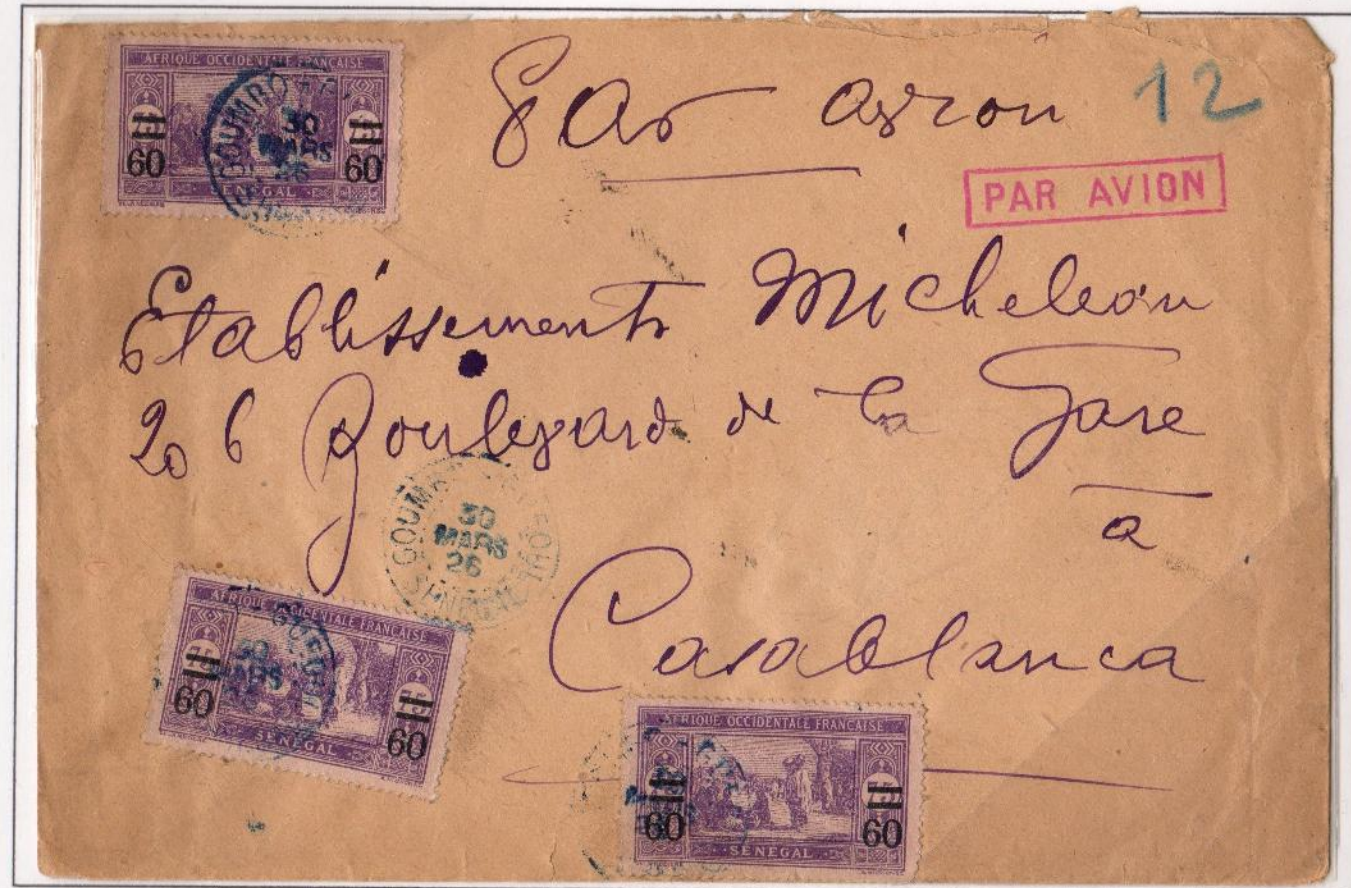 AFRIQUE OCCIDENTALE FRANÇAISE
60 60
SENEGAL
30
MARS
26
Par avion 12
PAR AVION
Etablissements Micheleau
206 Boulevard de la Gare
à
Casablanca
30
MARS
26
AFRIQUE OCCIDENTALE FRANÇAISE
60 60
SENEGAL
30
MARS
AFRIQUE OCCIDENTALE FRANÇAISE
75
60 60
SENEGAL